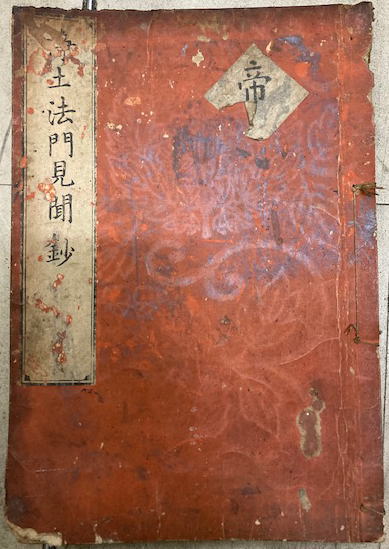 帝
淨土法門見聞鈔